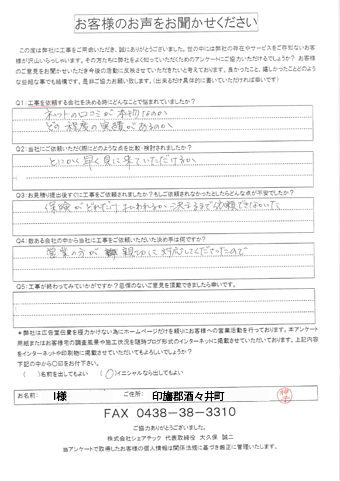 お客様のお声をお聞かせください
この度は弊社に工事をご用命いただき、誠にありがとうございました。世の中には弊社の存在やサービスをご存知ないお客
様が沢山いらっしゃいます。その方たちに弊社をよく知っていただくためのアンケートにご協力いただけるでしょうか？お客様
のご意見をお聞かせいただき今後の活動に反映させていただきたいと考えております。良かったこと、嬉しかったことどのよう
な些細な事でも結構です。是非ご協力お願い致します。（出来るだけ具体的に書いていただければ幸いです）
Q1：工事を依頼する会社を決める時にどんなことで悩まれていましたか？
ネットの口コミが本物なのか
どの程度の実績があるのか
Q2：当社にご依頼いただく際にどのような点を比較・検討されましたか？
とにかく早く見に来ていただけるか
Q3：お見積り提出後すぐに工事をご依頼されましたか？もしご依頼されなかったとしたらどんな点が不安でしたか？
保険がどれだけ払われるか決まるまで依頼できないた
Q4：数ある会社の中から当社に工事をご依頼いただいた決め手は何ですか？
営業の方が親切に対応してくださったので
Q5：工事が終わってみていかがですか？忌憚のないご意見を頂戴できましたら幸いです。
＊弊社は広告宣伝費を極力かけない為にホームページだけを頼りにお客様への営業活動を行っております。本アンケート
用紙またはお客様宅の調査風景や施工状況を随時ブログ形式のインターネットに掲載させていただいております。上記内容
をインターネットや印刷物に掲載させていただいてもよろしいでしょうか？
下記の中から〇印をお付け下さい。
（　）名前を出してもよい　（〇）イニシャルなら出してもよい
お名前：　I様　ご住所：　印旛郡酒々井町
FAX 0438-38-3310
ご協力ありがとうございました。
株式会社シェアテック　代表取締役　大久保　誠二
当アンケートで取得したお客様の個人情報は関係法規に基づき厳正に管理いたします。